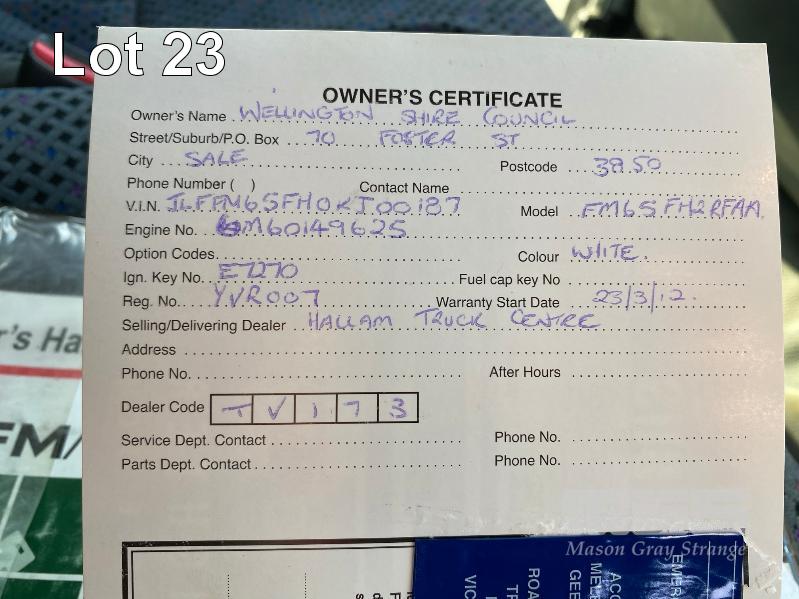 Lot 23
OWNER'S CERTIFICATE
Owner's Name WELLINGTON SHIRE COUNCIL
Street/Suburb/P.O. Box 70 FOSTER ST
City SALE Postcode 3850
Phone Number ( ) Contact Name
V.I.N. JLFFM65FH0KJ00187 Model FM65FH2RFAA
Engine No. 6M60149625
Option Codes Colour WHITE.
Ign. Key No. E7270 Fuel cap key No
Reg. No. YVR007 Warranty Start Date 23/3/12.
Selling/Delivering Dealer HALLAM TRUCK CENTRE
Address
Phone No. After Hours
Dealer Code T V 1 7 3
Service Dept. Contact Phone No.
Parts Dept. Contact Phone No.
Mason Gray Strange
r's Ha
FM/
VIC
ROA
MEL
GEE
ACC
EMER